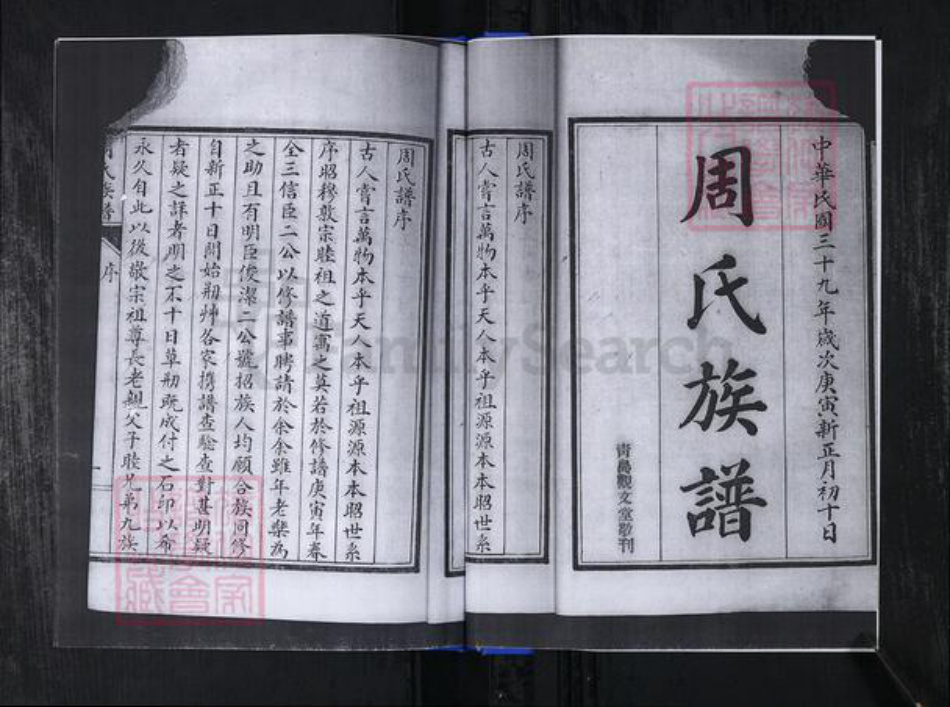 中華民國三十九年歲次庚寅新正月初十日
周氏族譜
青島觀文堂敬刊
周氏譜序
古人嘗言萬物本乎天人本乎祖源源本本昭世系
周氏譜序
古人嘗言萬物本乎天人本乎祖源源本本昭世系
序昭穆敦宗睦祖之道寓之莫若於修譜庚寅年春
全三信臣二公以修譜事聘請於余余雖年老樂為
之助且有明臣俊潔二公號招族人均願合族同修
自新正十日開始刱艸各家携譜查驗查對甚明疑
者疑之詳者明之不十日草刱既成付之石印以希
永久自此以後敬宗祖尊長老親父子睦兄弟九族
氏族譜
序
FamilySearch